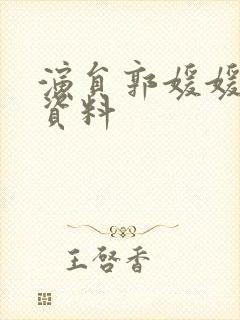 演員郭媛媛
資料
王啓香